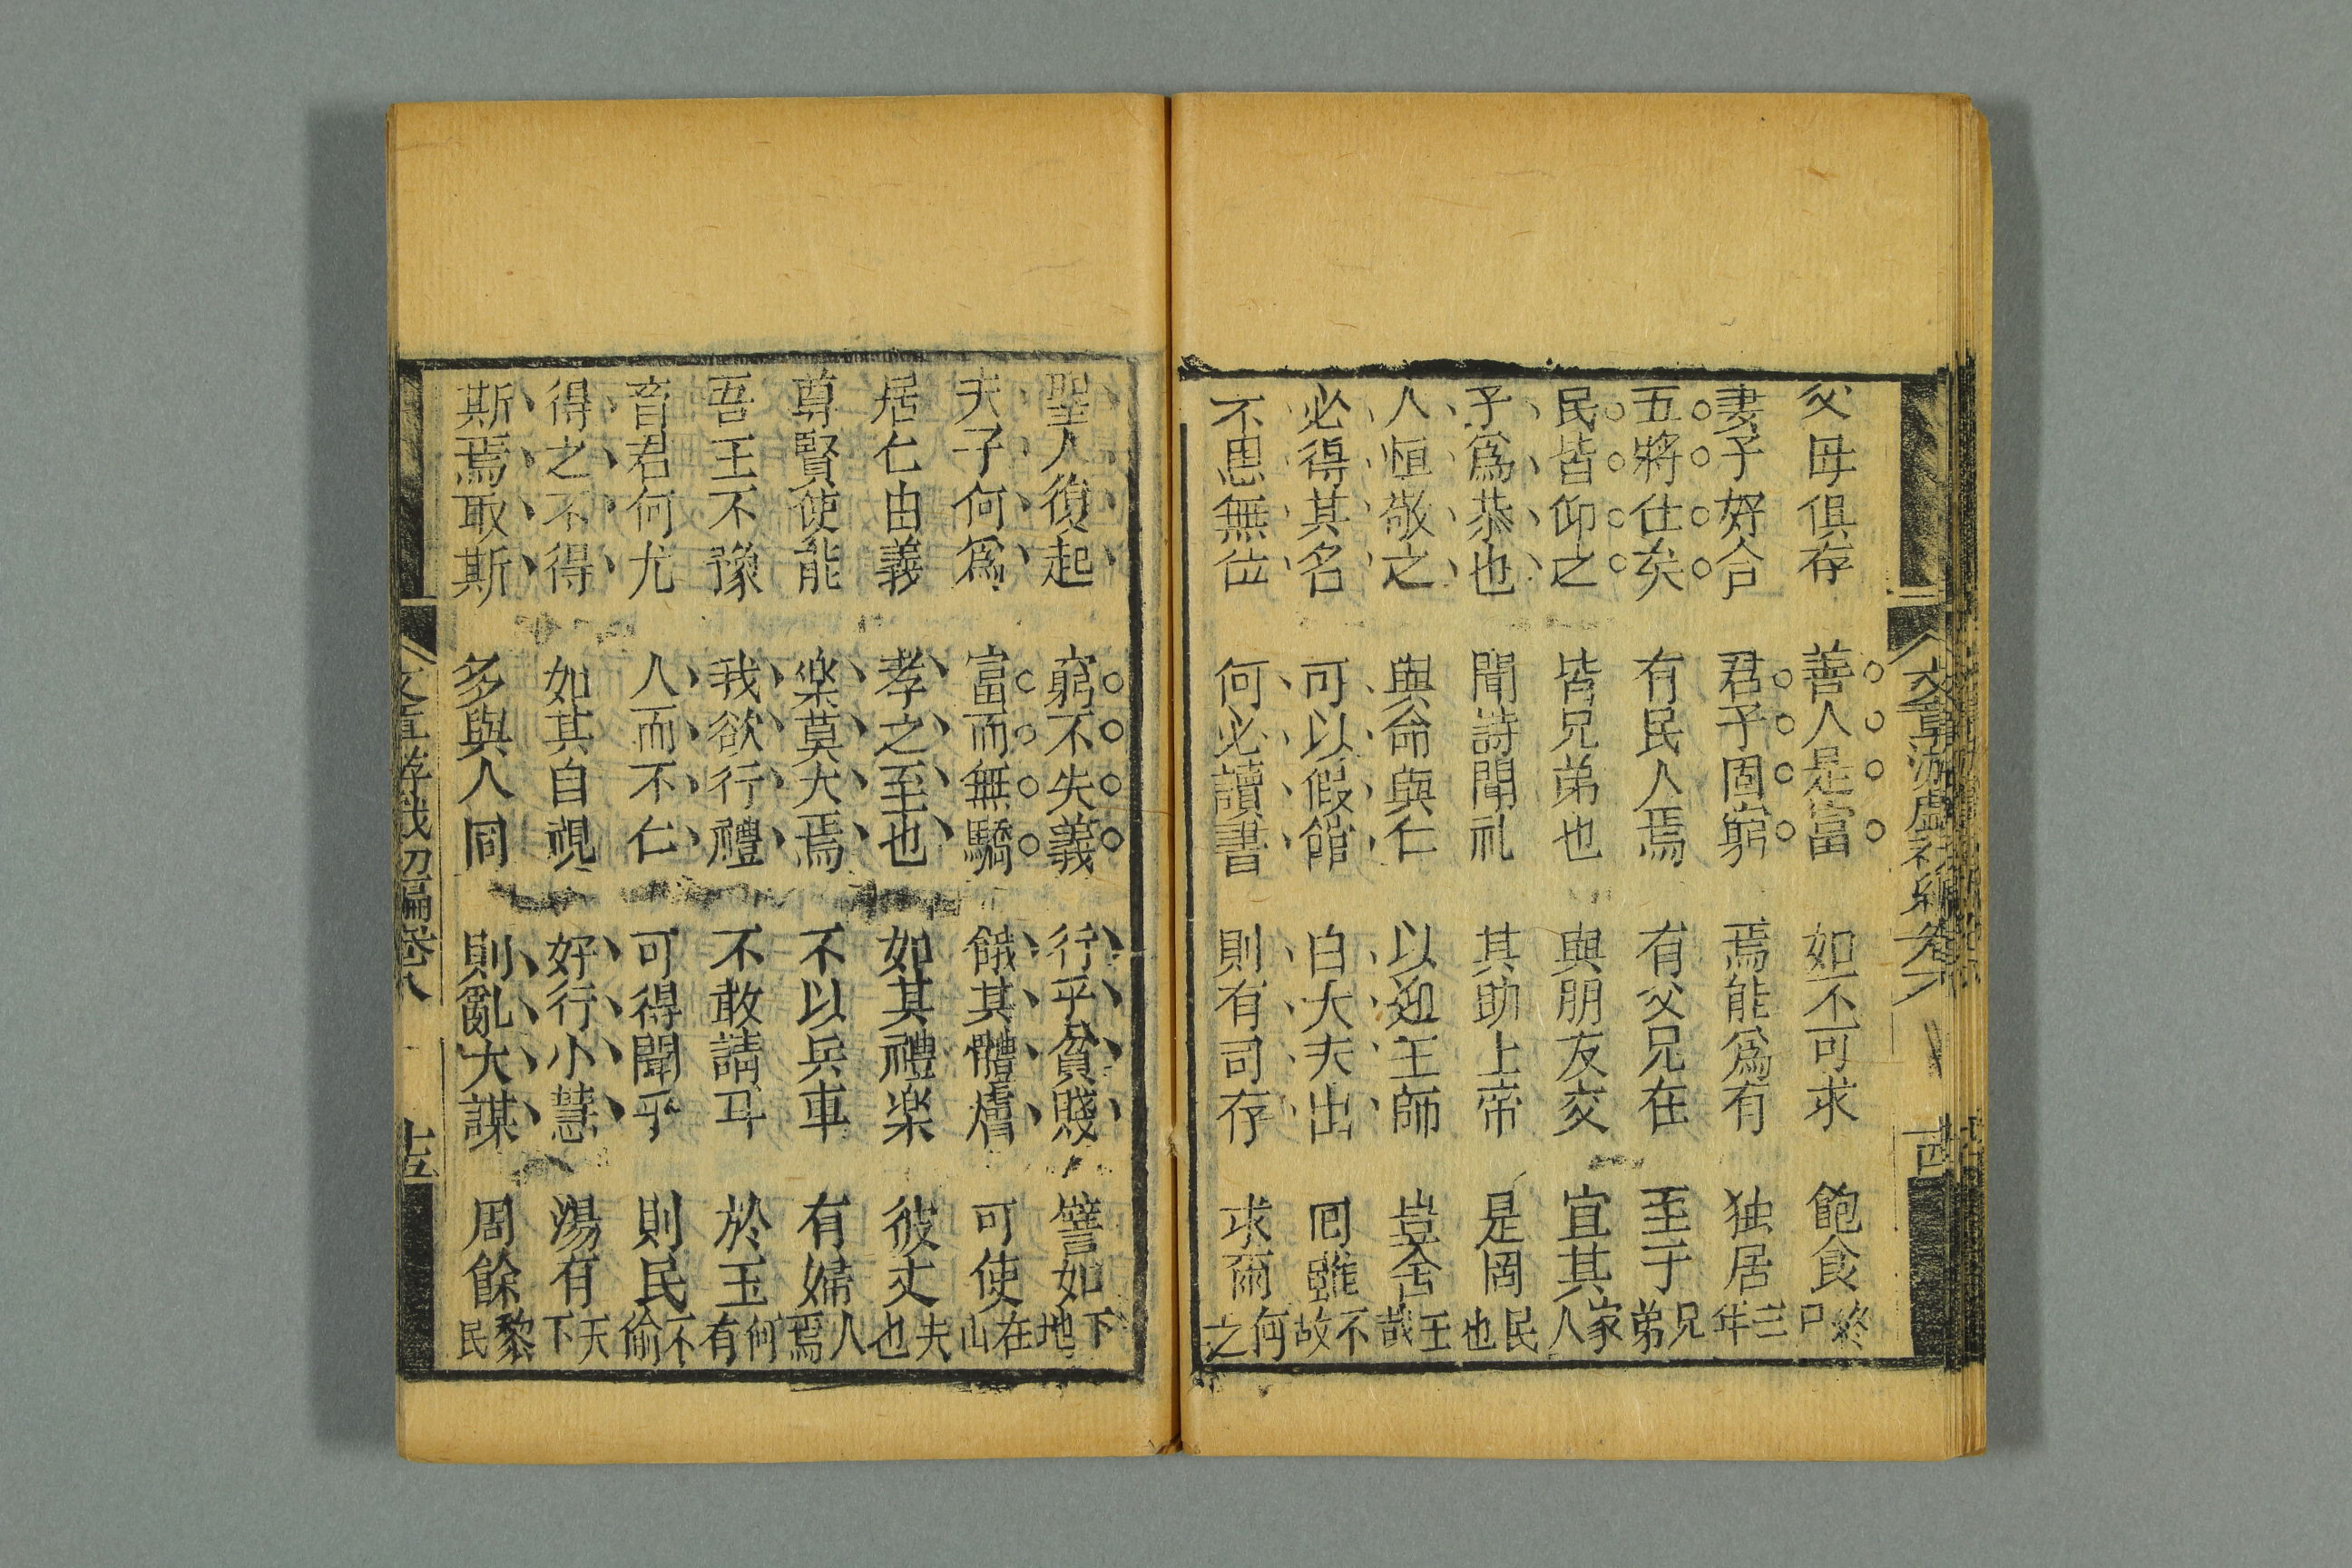 父母俱存 善人是富 如不可求 飽食終日
妻子好合 君子固窮 焉能爲有 独居三年
五將仕矣 有民人焉 有父兄在 至于兄弟
民皆仰之 皆兄弟也 與朋友交 宜其家人
予爲恭也 聞詩聞礼 其助上帝 是罔民也
人恒敬之 與命與仁 以迎王師 豈舍王哉
必得其名 可以假館 白大夫出 囘雖不故
不思無位 何必讀書 則有司存 求爾何之
聖人復起 窮不失義 行乎貧賤 譬如下地
夫子何爲 富而無驕 餓其體膚 可使在山
居仁由義 孝之至也 如其禮楽 彼丈夫也
尊賢使能 楽莫大焉 不以兵車 有婦人焉
吾王不豫 我欲行禮 不敢請耳 於王何有
音君何尤 人而不仁 可得聞乎 則民不偷
得之不得 如其自視 好行小慧 湯有天下
斯焉取斯 多與人同 則亂大謀 周餘黎民
十五